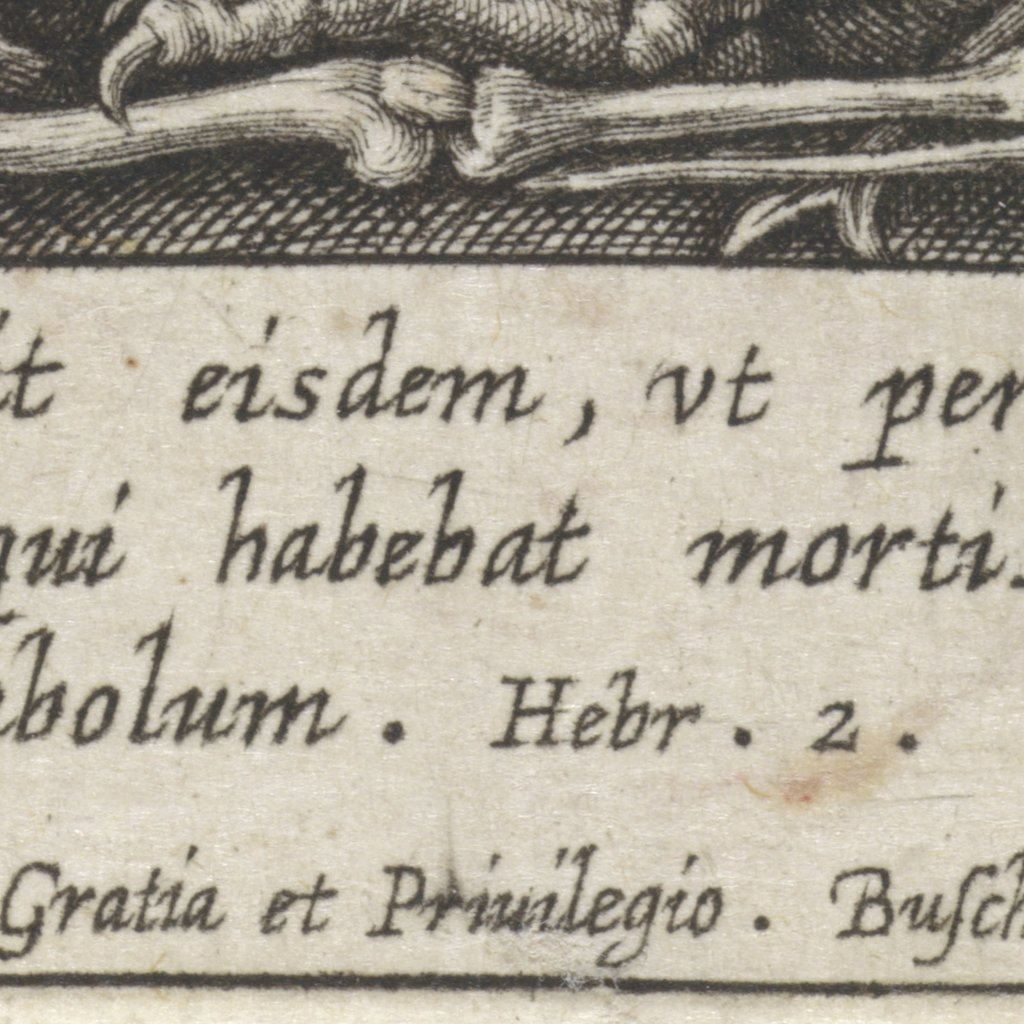 it eisdem, vt per
qui habebat mortis
bolum. Hebr. 2.
Gratia et Priuilegio. Busch